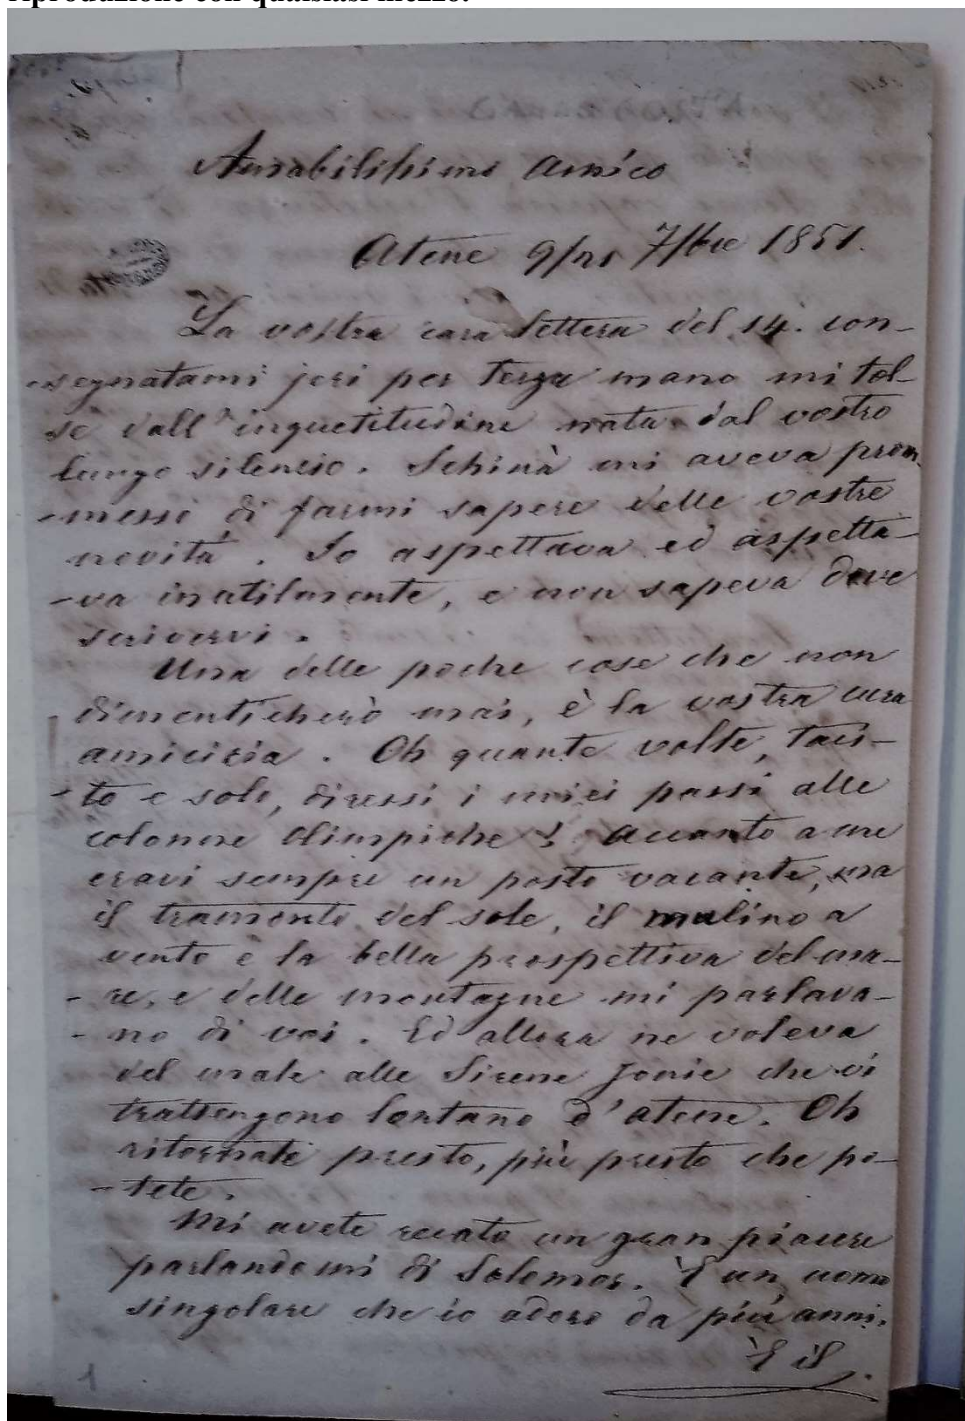 riproduzione con qualsiasi mezzo.
Amabilissimo Amico
Atene 9/21 7/bre 1851.
La vostra cara lettera del 14. con-
-segnatami jeri per terza mano mi tol-
se dall'inquetitudine nata dal vostro
lungo silenzio. Schinà mi aveva prom-
-messi di farmi sapere delle vostre
novità. Io aspettava ed aspetta-
-va inutilmente, e non sapeva dove
scrivervi.
Una delle poche cose che non
dimenticherò mai, è la vostra cara
amicizia. Oh quante volte, taci-
-to e solo, diressi i miei passi alle
colonne Olimpiche! Accanto a me
eravi sempre un posto vacante, ma
il tramonto del sole, il mulino a
vento e la bella prospettiva del ma-
-re, e delle montagne mi parlava-
-no di voi. Ed allora ne voleva
del male alle Sirene Jonie che vi
trattengono lontano d'atene. Oh
ritornate presto, più presto che po-
-tete.
Mi avete recato un gran piacere
parlandomi di Solomos. È un uomo
singolare che io adoro da più anni.
È il
1